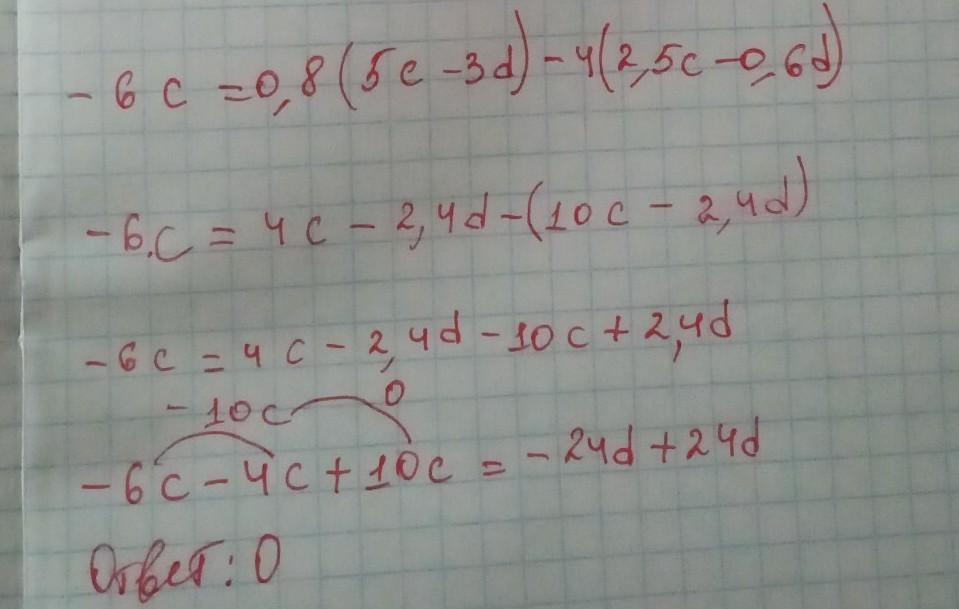 - 6 c = 0,8 (5c - 3d) - 4(2,5c - 0,6d)
- 6.c = 4c - 2,4d - (10c - 2,4d)
- 6c = 4c - 2,4d - 10c + 2,4d
- 10c 0
- 6c - 4c + 10c = - 24d + 24d
Ответ: 0